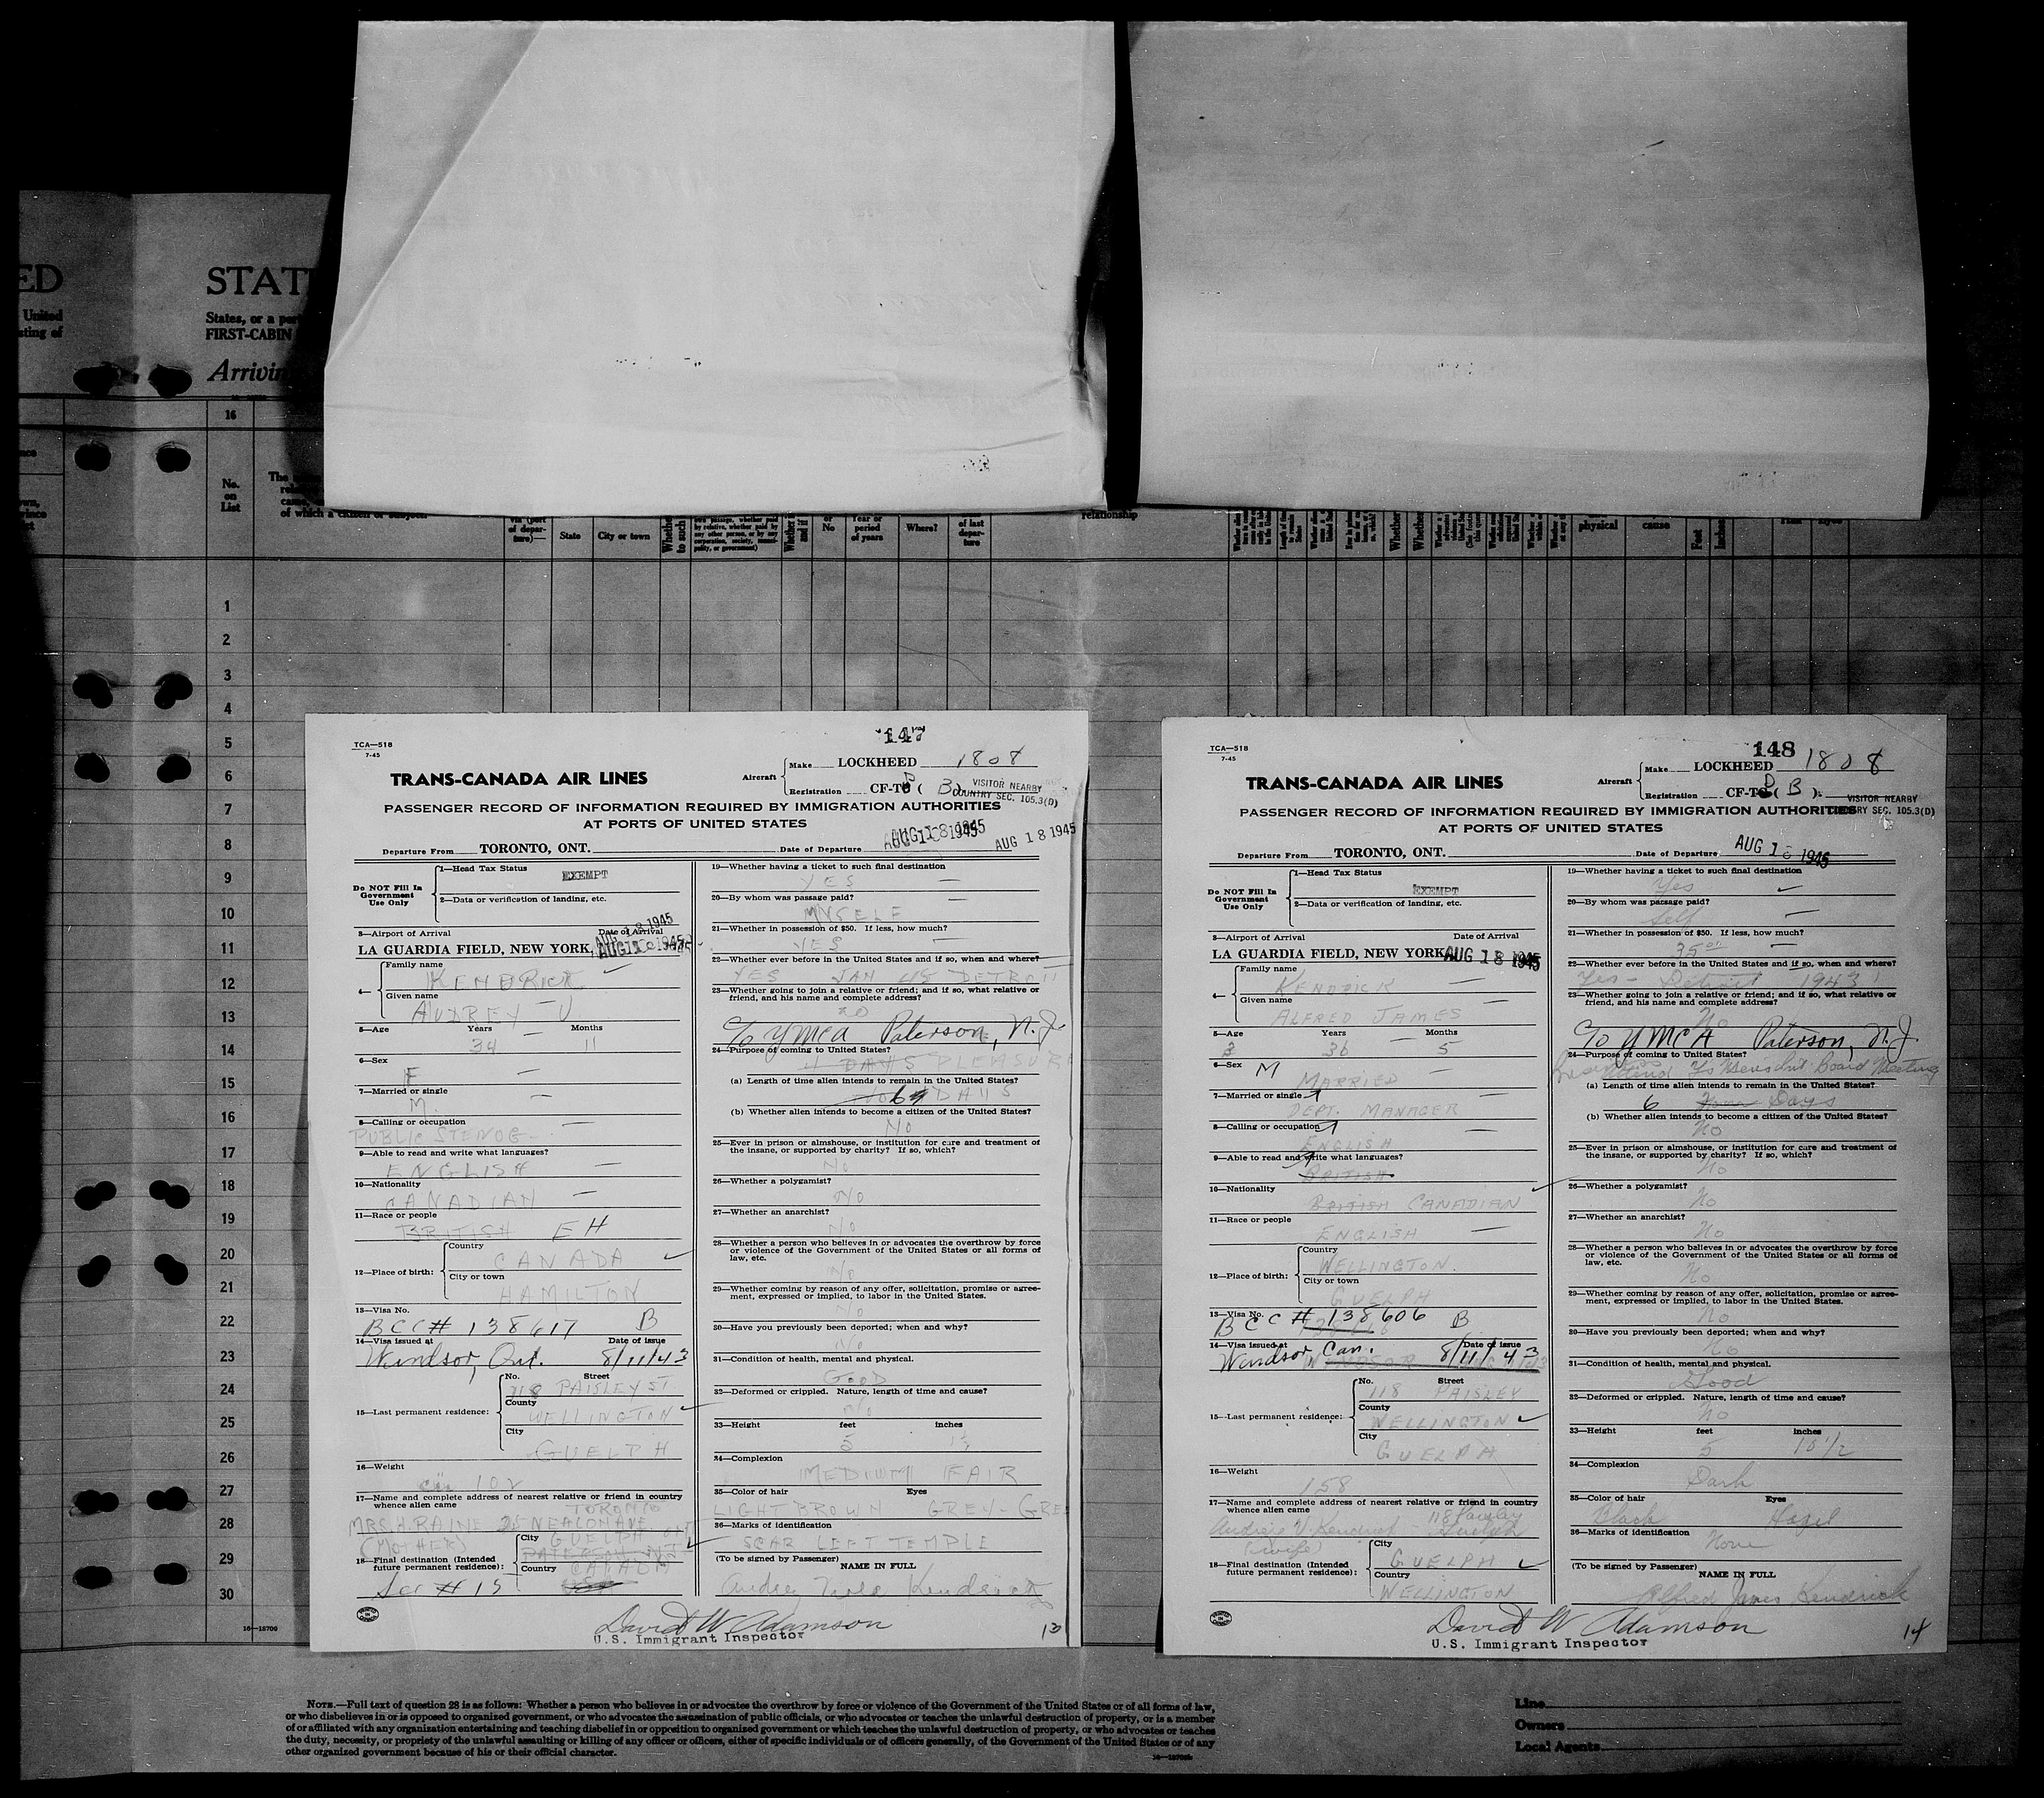 ED
United
sting of
STAT
States, or a port
FIRST-CABIN
Arrivin
16
No.
on
List
The
of which a citizen or subject
via (port
of depar-
ture)—
State
City or town
Whether
to such
or
No
Year or
period
of years
Where?
of last
depar-
ture
relationship
physical
cause
Feet
Inches
1
2
3
4
5
6
7
8
9
10
11
12
13
14
15
16
17
18
19
20
21
22
23
24
25
26
27
28
29
30
16—18709
TCA—518
7-45
147
TRANS-CANADA AIR LINES
Aircraft
Make LOCKHEED 1808
Registration CF-T ( B
VISITOR NEARBY
COUNTRY SEC. 105.3(D)
PASSENGER RECORD OF INFORMATION REQUIRED BY IMMIGRATION AUTHORITIES
AT PORTS OF UNITED STATES
Departure From TORONTO, ONT. Date of Departure AUG 18 1945 AUG 18 1945
Do NOT Fill In
Government
Use Only
1—Head Tax Status EXEMPT
2—Data or verification of landing, etc.
3—Airport of Arrival Date of Arrival
LA GUARDIA FIELD, NEW YORK, AUG 18 1945
4— Family name
KENDRICK
Given name
AUDREY V
5—Age Years Months
34 11
6—Sex
F
7—Married or single
M.
8—Calling or occupation
PUBLIC STENOG
9—Able to read and write what languages?
ENGLISH
10—Nationality
CANADIAN
11—Race or people
BRITISH EH
12—Place of birth: Country
CANADA
City or town
HAMILTON
13—Visa No.
BCC# 138617 B
14—Visa issued at Date of issue
Windsor, Ont. 8/11/43
15—Last permanent residence: No. Street
118 PAISLEY ST
County
WELLINGTON
City
GUELPH
16—Weight
102
17—Name and complete address of nearest relative or friend in country
whence alien came
TORONTO
MRS. H. RAINE 25 NEALON AVE
(MOTHER)
18—Final destination (Intended
future permanent residence):
City GUELPH ONT
PATERSON NJ
Country CANADA
Ser # 15
19—Whether having a ticket to such final destination
YES
20—By whom was passage paid?
MYSELF
21—Whether in possession of $50. If less, how much?
YES
22—Whether ever before in the United States and if so, when and where?
YES JAN 45 DETROIT
23—Whether going to join a relative or friend; and if so, what relative or
friend, and his name and complete address?
NO
c/o YMCA Paterson, N.J.
24—Purpose of coming to United States?
4 DAYS PLEASURE
(a) Length of time alien intends to remain in the United States?
6 DAYS
(b) Whether alien intends to become a citizen of the United States?
No
25—Ever in prison or almshouse, or institution for care and treatment of
the insane, or supported by charity? If so, which?
No
26—Whether a polygamist?
No
27—Whether an anarchist?
No
28—Whether a person who believes in or advocates the overthrow by force
or violence of the Government of the United States or all forms of
law, etc.
No
29—Whether coming by reason of any offer, solicitation, promise or agree-
ment, expressed or implied, to labor in the United States.
No
30—Have you previously been deported; when and why?
No
31—Condition of health, mental and physical.
GOOD
32—Deformed or crippled. Nature, length of time and cause?
No
33—Height feet inches
5
34—Complexion
MEDIUM FAIR
35—Color of hair Eyes
LIGHT BROWN GREY-GREE
36—Marks of identification
SCAR LEFT TEMPLE
(To be signed by Passenger)
NAME IN FULL
Audrey Kendrick
David W Adamson
U.S. Immigrant Inspector
13
TCA—518
7-45
148
TRANS-CANADA AIR LINES
Aircraft
Make LOCKHEED 1808
Registration CF-T ( B ).
VISITOR NEARBY
COUNTRY SEC. 105.3(D)
PASSENGER RECORD OF INFORMATION REQUIRED BY IMMIGRATION AUTHORITIES
AT PORTS OF UNITED STATES
Departure From TORONTO, ONT. Date of Departure AUG 18 1945
Do NOT Fill In
Government
Use Only
1—Head Tax Status EXEMPT
2—Data or verification of landing, etc.
3—Airport of Arrival Date of Arrival
LA GUARDIA FIELD, NEW YORK, AUG 18 1945
4— Family name
KENDRICK
Given name
ALFRED JAMES
5—Age Years Months
3 36 5
6—Sex M
MARRIED
7—Married or single
DEPT. MANAGER
8—Calling or occupation
ENGLISH
9—Able to read and write what languages?
BRITISH
10—Nationality
BRITISH CANADIAN
11—Race or people
ENGLISH
12—Place of birth: Country
WELLINGTON.
City or town
GUELPH
13—Visa No.
BCC # 138606 B
14—Visa issued at Date of issue
Windsor Can. 8/11/43
15—Last permanent residence: No. Street
118 PAISLEY
County
WELLINGTON
City
GUELPH
16—Weight
158
17—Name and complete address of nearest relative or friend in country
whence alien came
118 Paisley
Audrey V Kendrick Guelph
(wife)
18—Final destination (Intended
future permanent residence):
City
GUELPH
Country
WELLINGTON
19—Whether having a ticket to such final destination
Yes
20—By whom was passage paid?
Self
21—Whether in possession of $50. If less, how much?
35.00
22—Whether ever before in the United States and if so, when and where?
Yes - Detroit 1943
23—Whether going to join a relative or friend; and if so, what relative or
friend, and his name and complete address?
No
c/o YMCA Paterson, N.J.
24—Purpose of coming to United States?
attend Ys Mens Int Board Meeting
(a) Length of time alien intends to remain in the United States?
6 Four Days
(b) Whether alien intends to become a citizen of the United States?
No
25—Ever in prison or almshouse, or institution for care and treatment of
the insane, or supported by charity? If so, which?
No
26—Whether a polygamist?
No
27—Whether an anarchist?
No
28—Whether a person who believes in or advocates the overthrow by force
or violence of the Government of the United States or all forms of
law, etc.
No
29—Whether coming by reason of any offer, solicitation, promise or agree-
ment, expressed or implied, to labor in the United States.
No
30—Have you previously been deported; when and why?
No
31—Condition of health, mental and physical.
Good
32—Deformed or crippled. Nature, length of time and cause?
No
33—Height feet inches
5 10 1/2
34—Complexion
Dark
35—Color of hair Eyes
Black Hazel
36—Marks of identification
None
(To be signed by Passenger)
NAME IN FULL
Alfred James Kendrick
David W Adamson
U.S. Immigrant Inspector
14
NOTE.—Full text of question 28 is as follows: Whether a person who believes in or advocates the overthrow by force or violence of the Government of the United States or of all forms of law,
or who disbelieves in or is opposed to organized government, or who advocates the assassination of public officials, or who advocates or teaches the unlawful destruction of property, or is a member
of or affiliated with any organization entertaining and teaching disbelief in or opposition to organized government or which teaches the unlawful destruction of property, or who advocates or teaches
the duty, necessity, or propriety of the unlawful assaulting or killing of any officer or officers, either of specific individuals or of officers generally, of the Government of the United States or of any
other organized government because of his or their official character.
Line
Owners
Local Agents